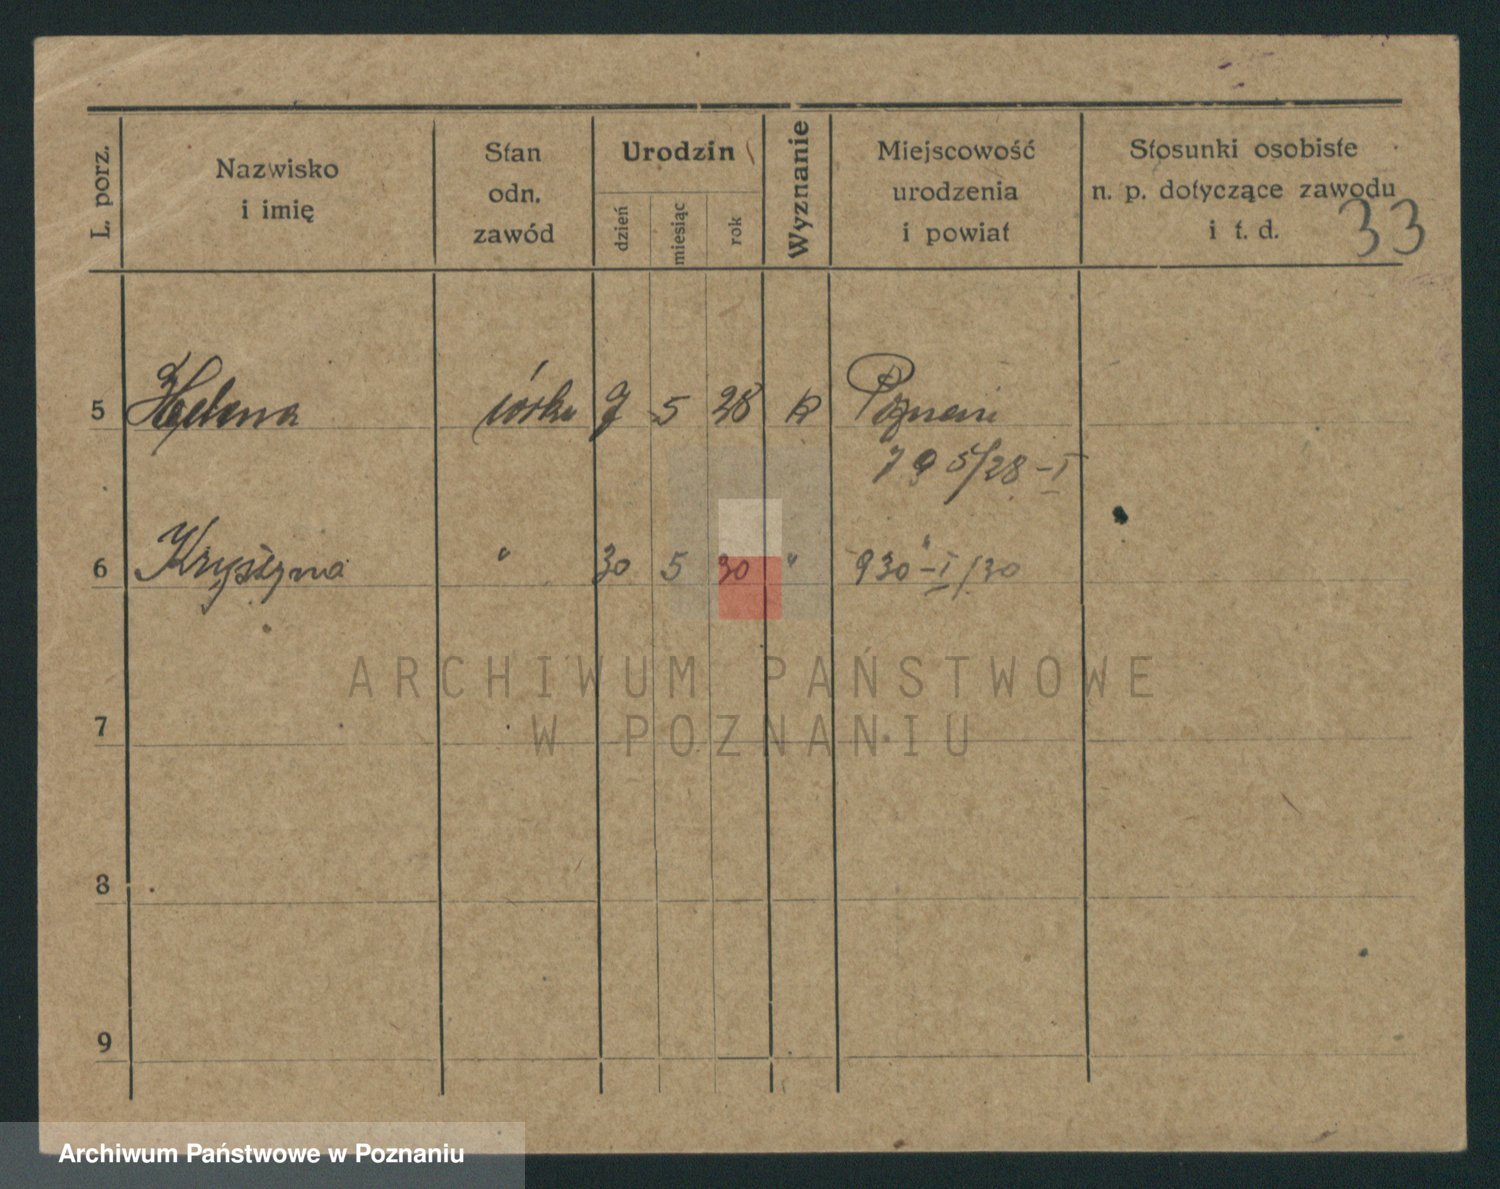 L. porz.
Nazwisko
i imię
Stan
odn.
zawód
Urodzin
dzień
miesiąc
rok
Wyznanie
Miejscowość
urodzenia
i powiat
Stosunki osobiste
n. p. dotyczące zawodu
i t. d.
33
5 Helena córka 9 5 28 k Poznań
795/28-I
6 Krystyna " 30 5 30 " "
930-I/30
7
8
9
ARCHIWUM PAŃSTWOWE
W POZNANIU
Archiwum Państwowe w Poznaniu